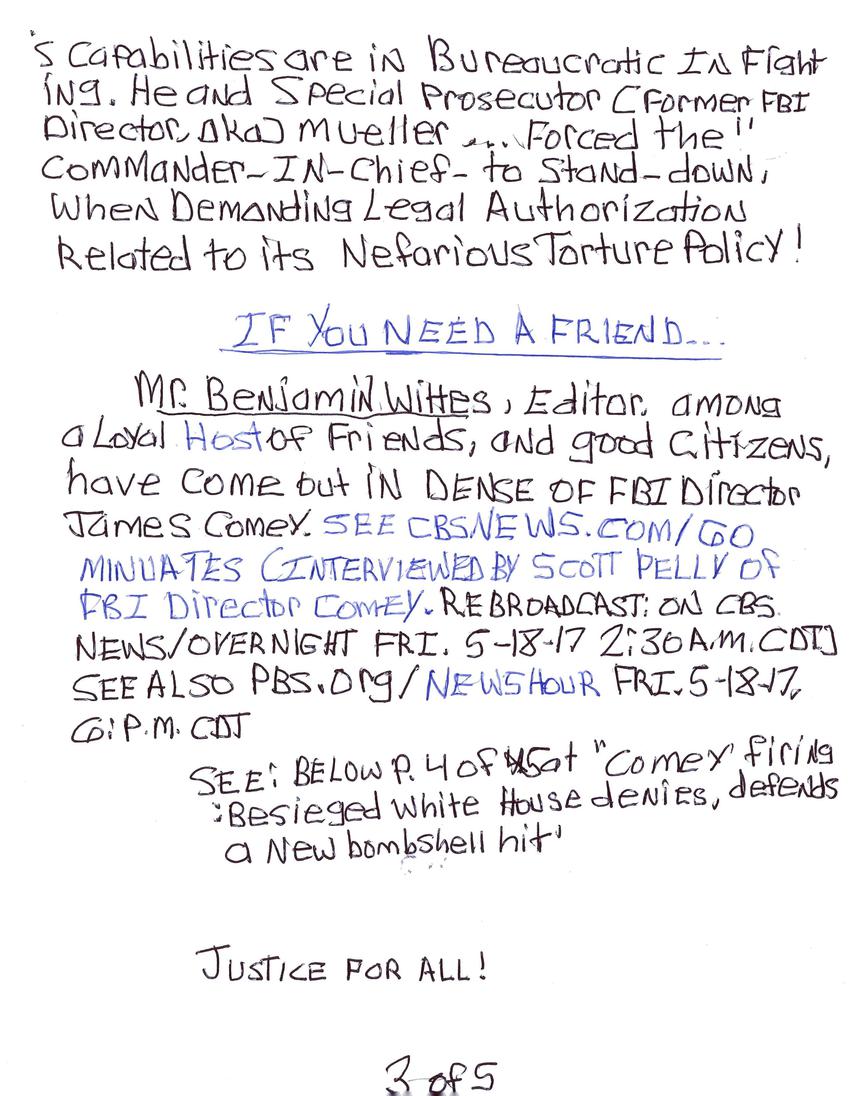 's Capabilities are in Bureaucratic IN Fight
ing. He and Special Prosecutor (former FBI
Director, aka) Mueller .... Forced the "
Commander-IN-Chief- to Stand-down,
When Demanding Legal Authorization
Related to its Nefarious Torture Policy!
IF YOU NEED A FRIEND...
Mr. Benjamin Wittes, Editor, among
a Loyal Host of Friends, and good Citizens,
have come out IN DENSE OF FBI Director
James Comey. SEE CBSNEWS.COM/60
MINUATES (INTERVIEWED BY SCOTT PELLY OF
FBI Director COMEY. REBROADCAST: ON CBS
NEWS/OVERNIGHT FRI. 5-18-17 2:30 A.M. CDT)
SEE ALSO PBS.Org/NEWSHOUR FRI. 5-18-17,
6: P.M. CDT
SEE: BELOW P. 4 OF 5 at "Comey' firing
:Besieged White House denies, defends
a New bombshell hit'
JUSTICE FOR ALL!
3 of 5